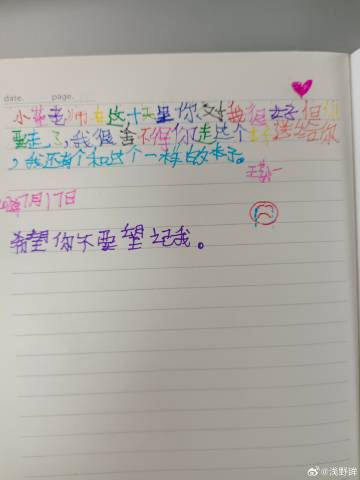 date. page.
小花老师在这十天里你对我很好但你
要走了,我很舍不得你走这个本子送给你
,我还有个和这个一样的本子。
王
7月17日
希望你不要望记我。
@浅野眸